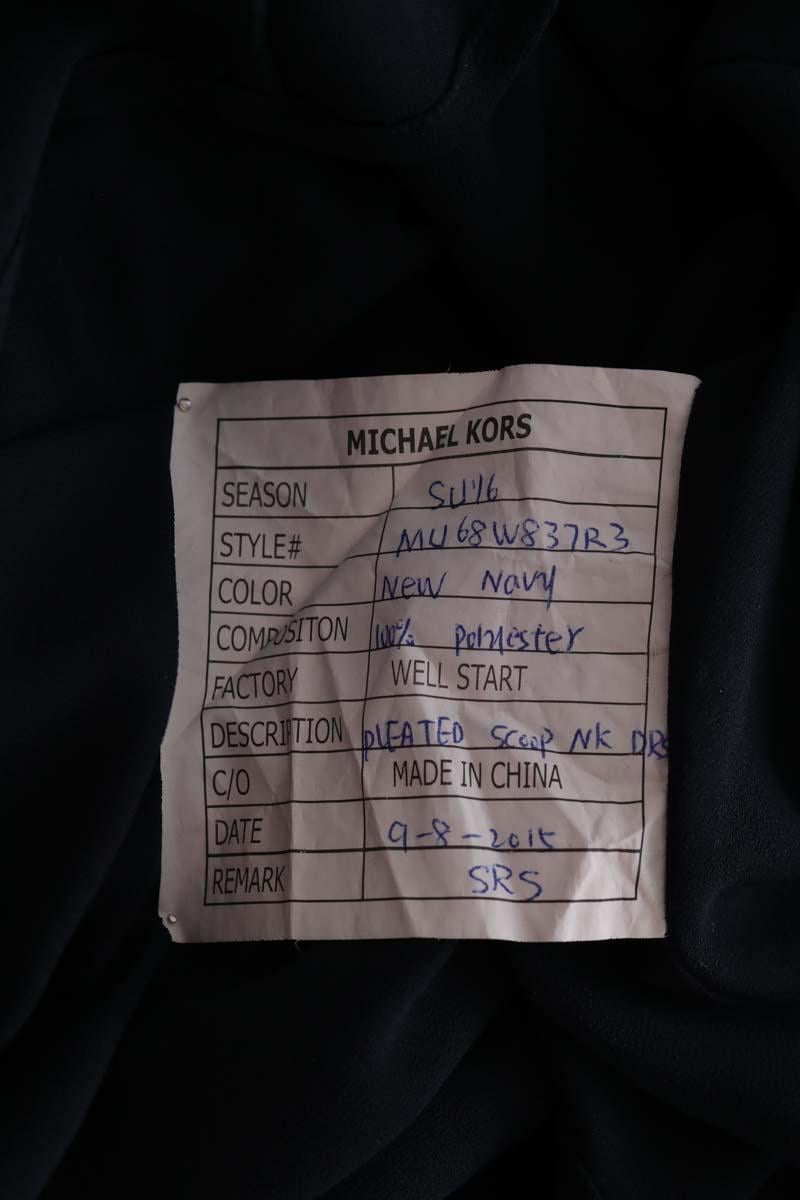 MICHAEL KORS
SEASON SU'16
STYLE# MU68W837R3
COLOR New Navy
COMPOSITON 100% Polyester
FACTORY WELL START
DESCRIPTION PLEATED Scoop NK DRS
C/O MADE IN CHINA
DATE 9-8-2015
REMARK SRS